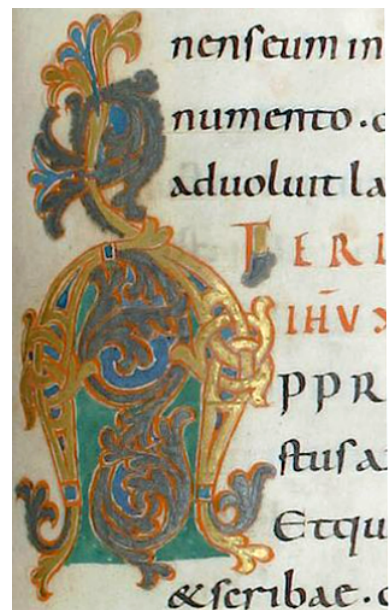 nens eum in
numento. c
aduoluit la
FERI
IHUX
A PPR
stus a
Et qu
& scribae. c